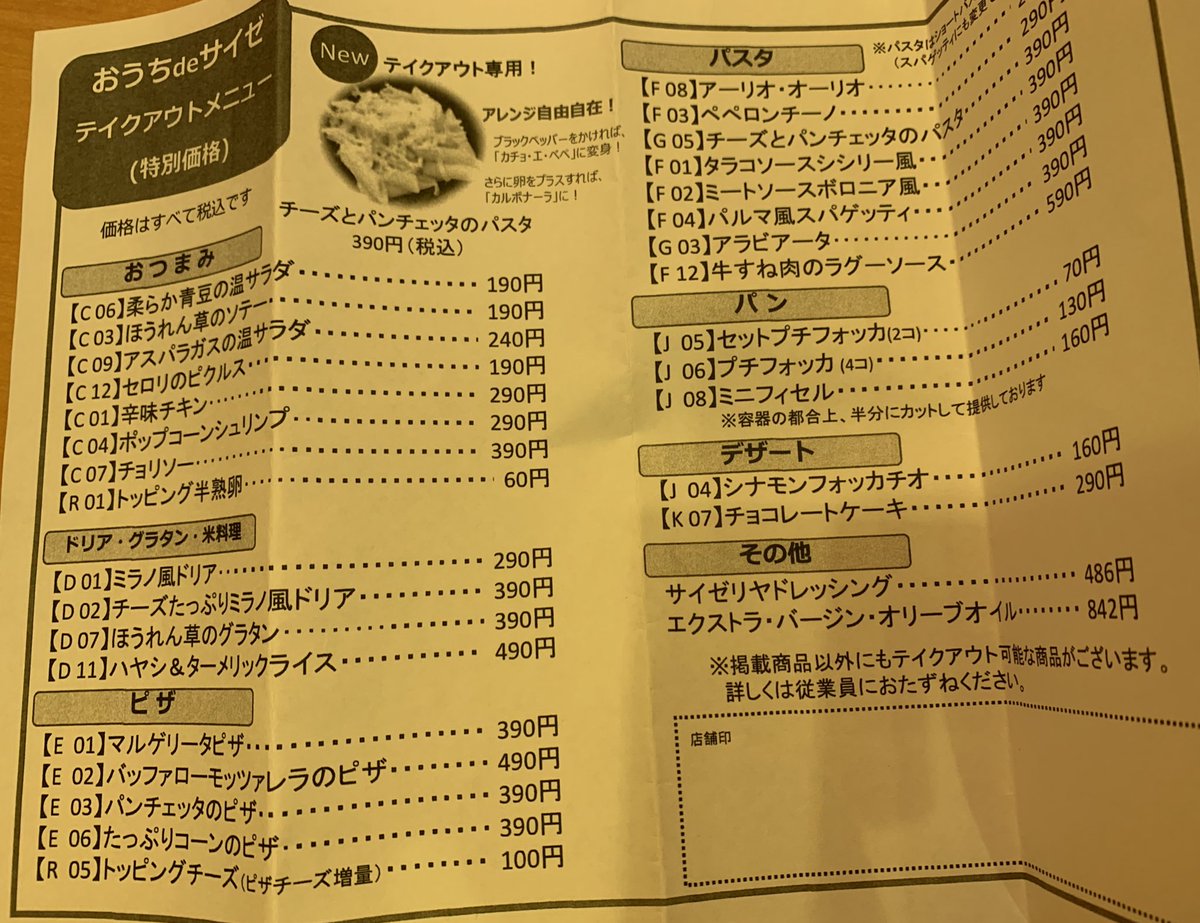 おうちdeサイゼ
テイクアウトメニュー
(特別価格)
価格はすべて税込です
New テイクアウト専用！
アレンジ自由自在！
ブラックペッパーをかければ、
「カチョ・エ・ペペ」に変身！
さらに卵をプラスすれば、
「カルボナーラ」に！
チーズとパンチェッタのパスタ
390円（税込）
おつまみ
【C 06】柔らか青豆の温サラダ 190円
【C 03】ほうれん草のソテー 190円
【C 09】アスパラガスの温サラダ 240円
【C 12】セロリのピクルス 190円
【C 01】辛味チキン 290円
【C 04】ポップコーンシュリンプ 290円
【C 07】チョリソー 390円
【R 01】トッピング半熟卵 60円
ドリア・グラタン・米料理
【D 01】ミラノ風ドリア 290円
【D 02】チーズたっぷりミラノ風ドリア 390円
【D 07】ほうれん草のグラタン 390円
【D 11】ハヤシ＆ターメリックライス 490円
ピザ
【E 01】マルゲリータピザ 390円
【E 02】バッファローモッツァレラのピザ 490円
【E 03】パンチェッタのピザ 390円
【E 06】たっぷりコーンのピザ 390円
【R 05】トッピングチーズ(ピザチーズ増量) 100円
パスタ
※パスタはショートパ
（スパゲッティにも変更
【F 08】アーリオ・オーリオ
【F 03】ペペロンチーノ 290円
【G 05】チーズとパンチェッタのパスタ 390円
【F 01】タラコソースシシリー風 390円
【F 02】ミートソースボロニア風 390円
【F 04】パルマ風スパゲッティ 390円
【G 03】アラビアータ 390円
【F 12】牛すね肉のラグーソース 590円
パン
【J 05】セットプチフォッカ(2コ) 70円
【J 06】プチフォッカ (4コ) 130円
【J 08】ミニフィセル 160円
※容器の都合上、半分にカットして提供しております
デザート
【J 04】シナモンフォッカチオ 160円
【K 07】チョコレートケーキ 290円
その他
サイゼリヤドレッシング 486円
エクストラ・バージン・オリーブオイル 842円
※掲載商品以外にもテイクアウト可能な商品がございます。
詳しくは従業員におたずねください。
店舗印